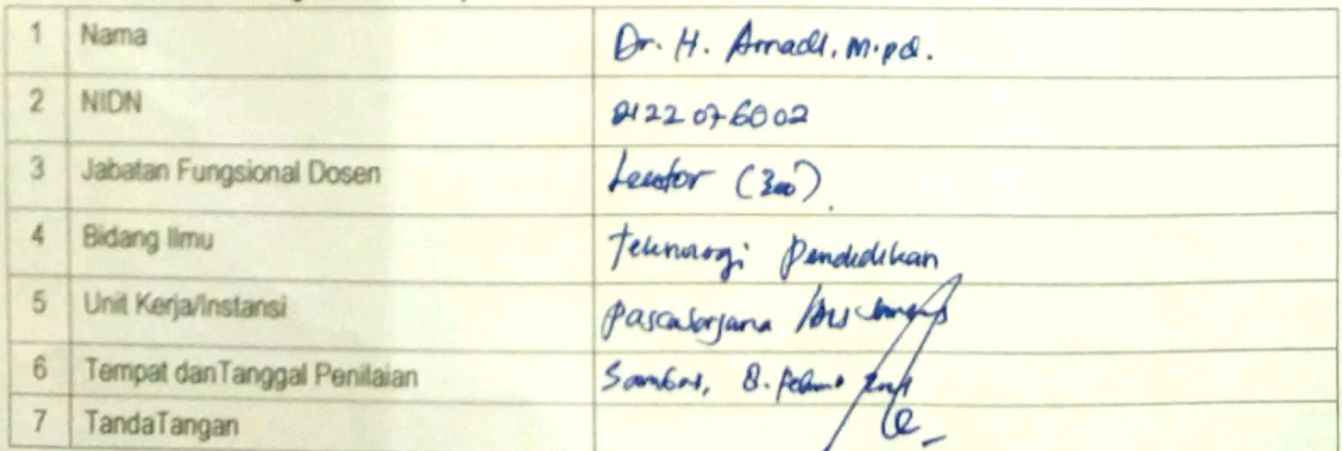 1 Nama Dr. H. Arnadi, M.pd.
2 NIDN 2122076002
3 Jabatan Fungsional Dosen Lektor (300)
4 Bidang Ilmu Teknologi Pendidikan
5 Unit Kerja/Instansi Pascasarjana
6 Tempat danTanggal Penilaian Sambas, 8.
7 TandaTangan